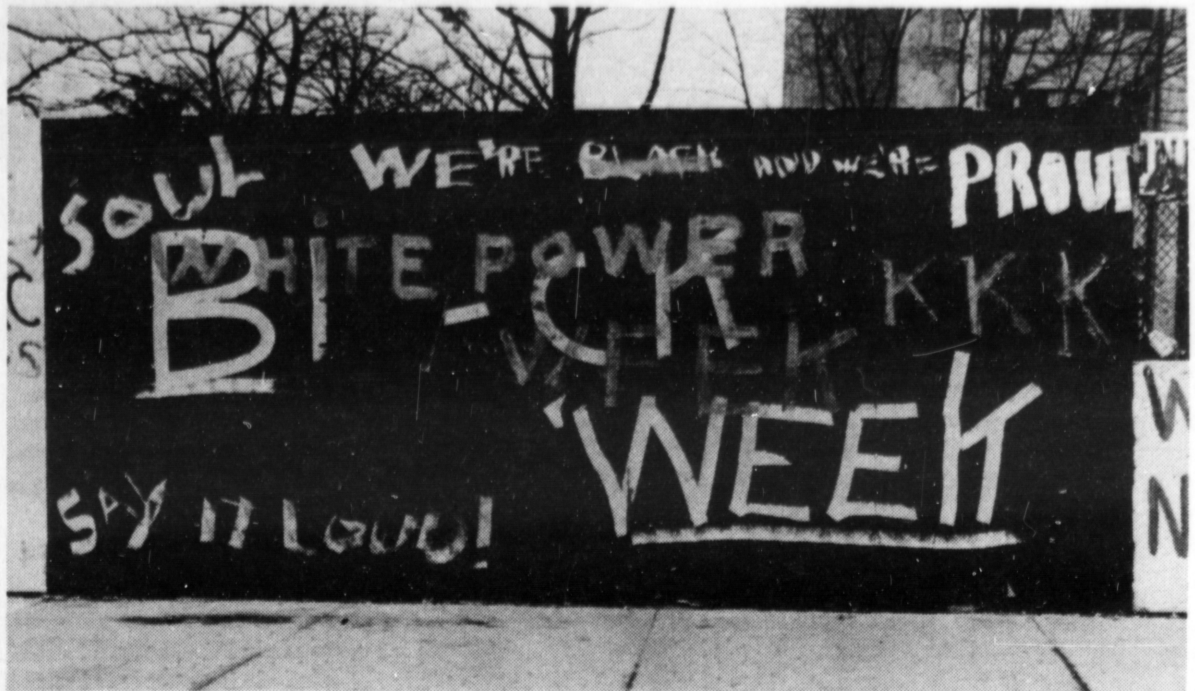 SOUL WE'RE BLACK AND WE'RE PROUD
WHITE POWER KKK
Bl-CK
WEEK
WEEK
SAY IT LOUD!
W
N